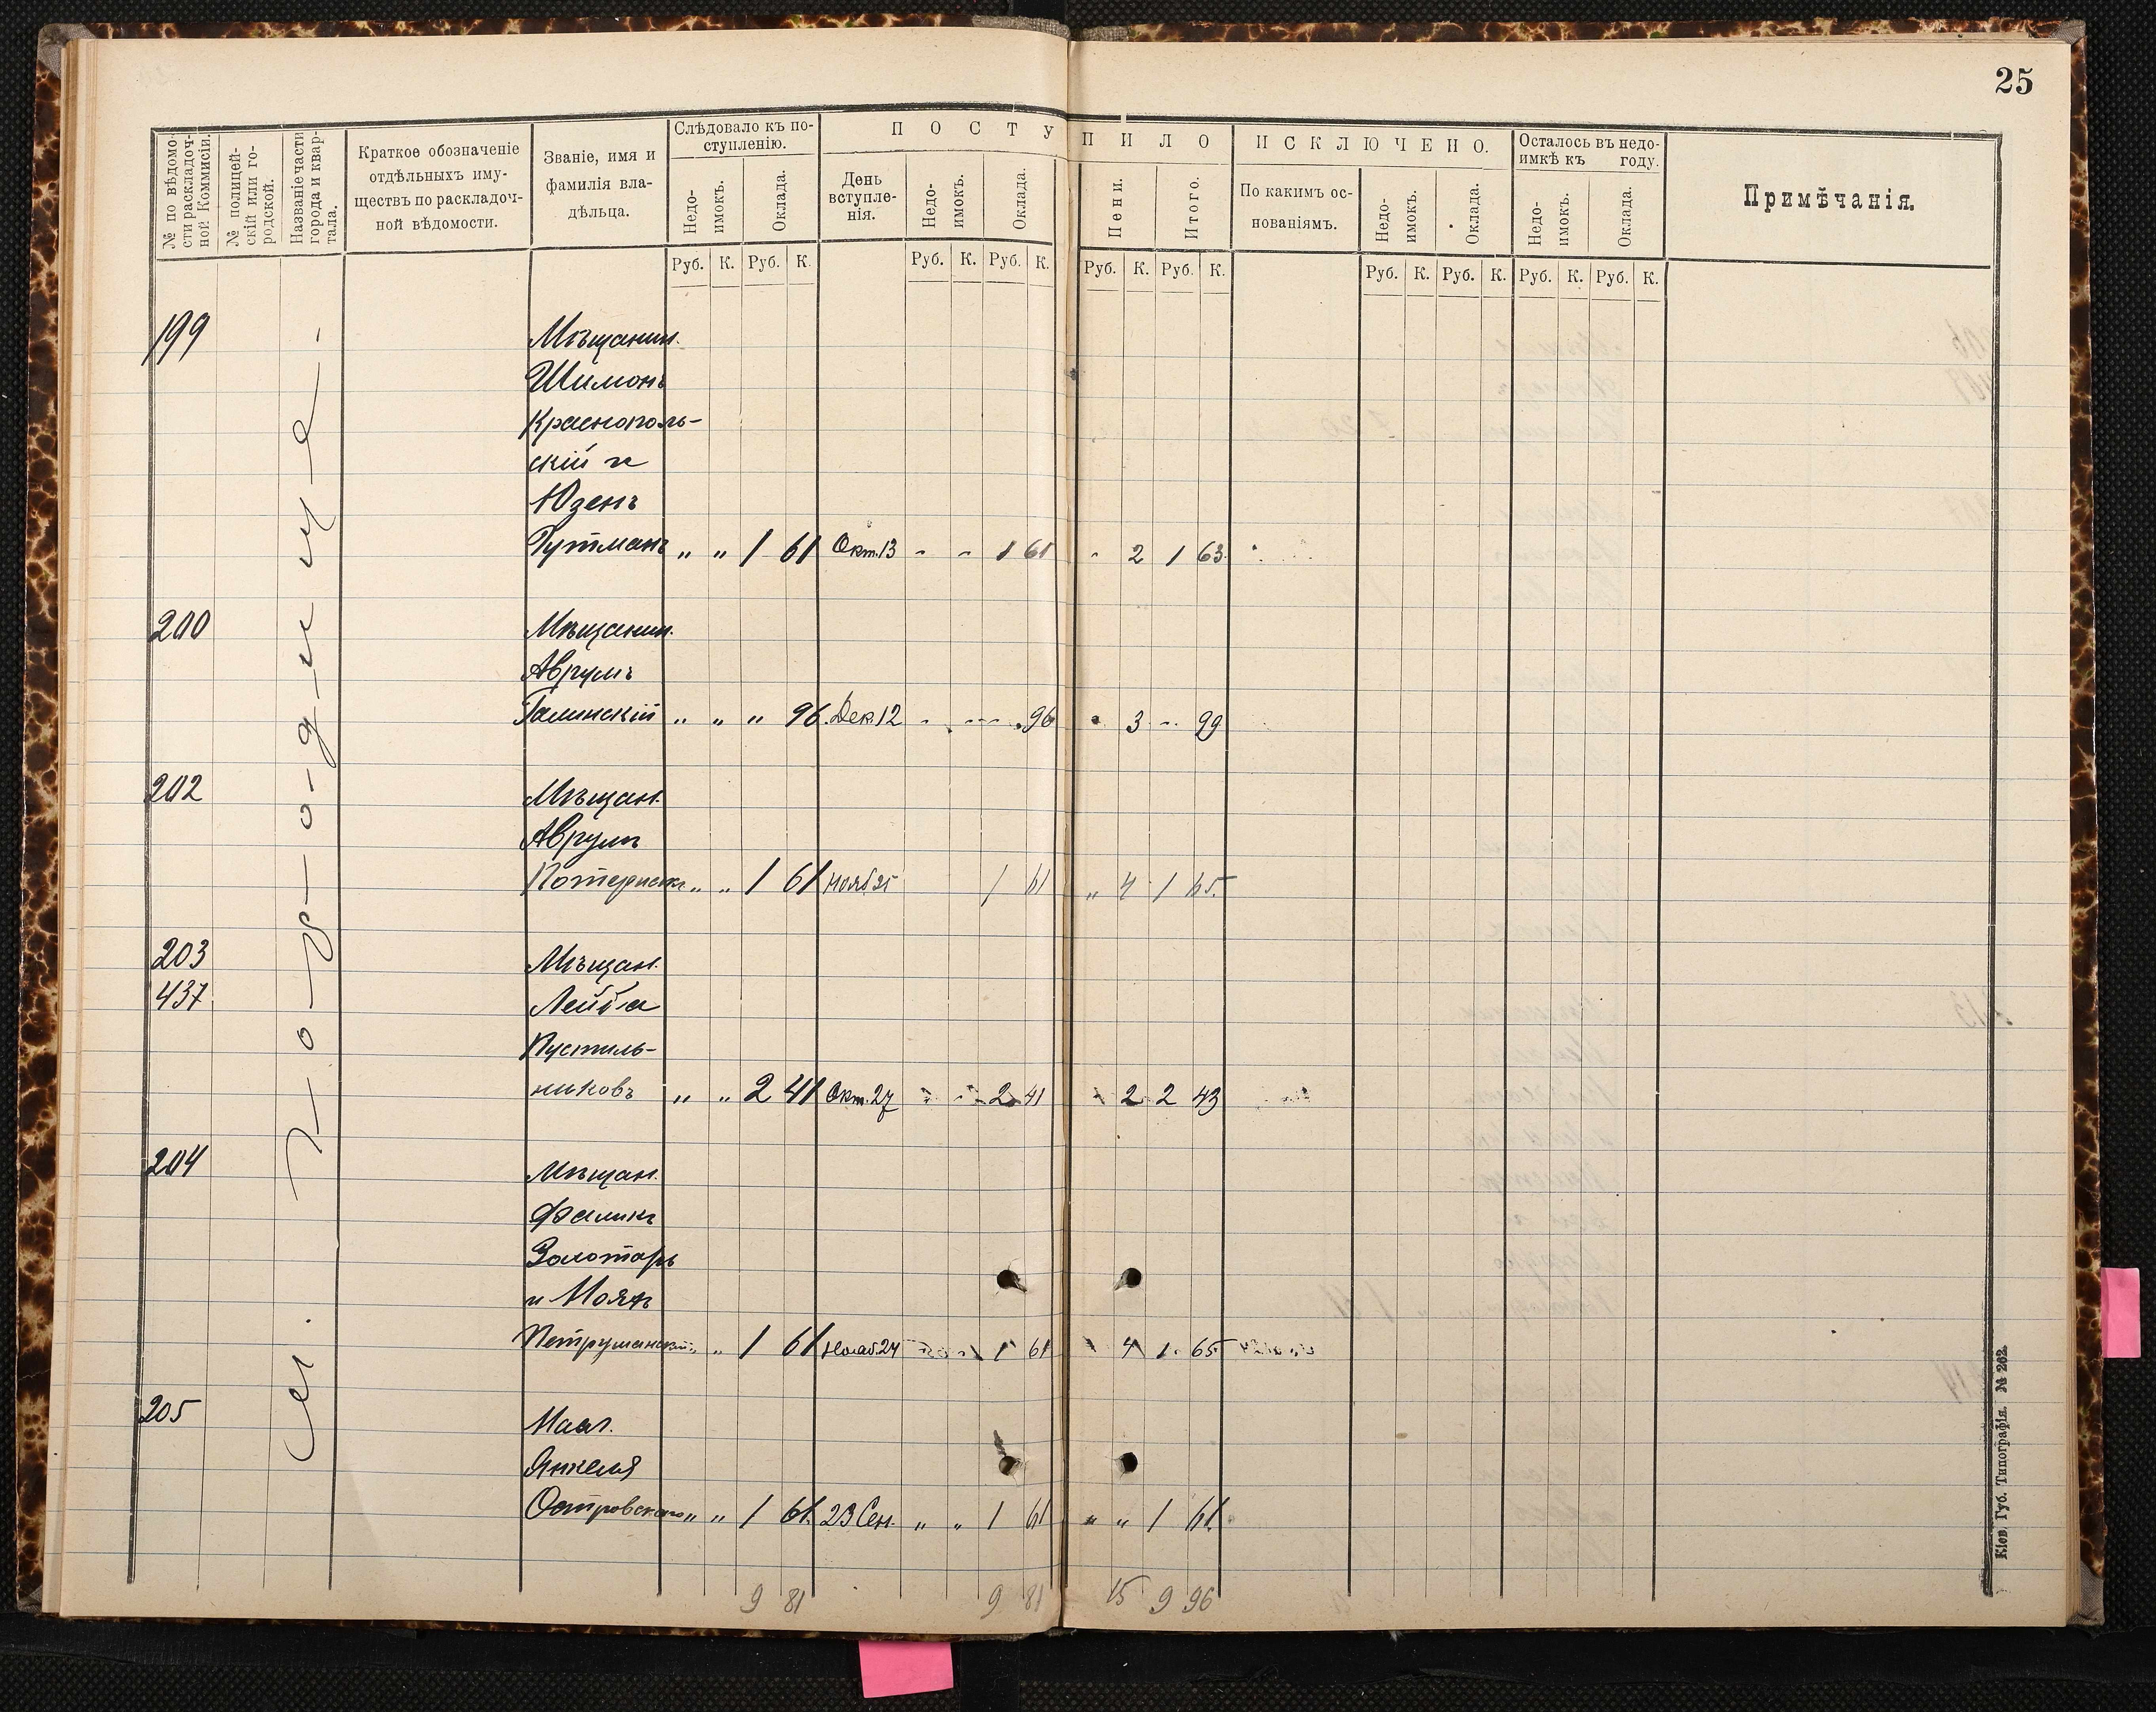 25
№ по вѣдомо-
сти раскладоч-
ной Коммисіи.
№ полицей-
скій или го-
родской.
Названіе части
города и квар-
тала.
Краткое обозначеніе
отдѣльныхъ иму-
ществъ по раскладоч-
ной вѣдомости.
Званіе, имя и
фамилія вла-
дѣльца.
Слѣдовало къ по-
ступленію.
Недо-
имокъ.
Оклада.
ПОСТУПИЛО
День
вступле-
нія.
Недо-
имокъ.
Оклада.
Пени.
Итого.
ИСКЛЮЧЕНО.
По какимъ ос-
нованіямъ.
Недо-
имокъ.
Оклада.
Осталось въ недо-
имкѣ къ году.
Недо-
имокъ.
Оклада.
Примѣчанія.
Руб. К. Руб. К. Руб. К. Руб. К. Руб. К. Руб. К. Руб. К. Руб. К. Руб. К. Руб. К.
м. Городище
199 Мѣщанин.
Шимонъ
Краснополь-
скій и
Юзень
Гутманъ „ „ 1 61 Окт. 13 - - 1 61 - 2 1 63
200 Мѣщанин.
Аврумъ
Галинскій „ „ „ 96 Дек. 12 - - - 96 - 3 - 99
202 Мѣщан.
Аврумъ
„ „ 1 61 Нояб 25 1 61 „ 4 1 65
203 Мѣщан.
437 Лейба
Пустиль-
никовъ „ „ 2 41 Окт. 27 - - 2 41 - 2 2 43
204 Мѣщан.
Фаликъ
Золотарь
и
„ „ 1 61 Нояб 24 1 61 4 1 65
205
Янкеля
Островскаго „ „ 1 61 23 Сен. „ „ 1 61 „ „ 1 61
9 81 9 81 15 9 96
Кіев. Губ. Типографія. № 262.